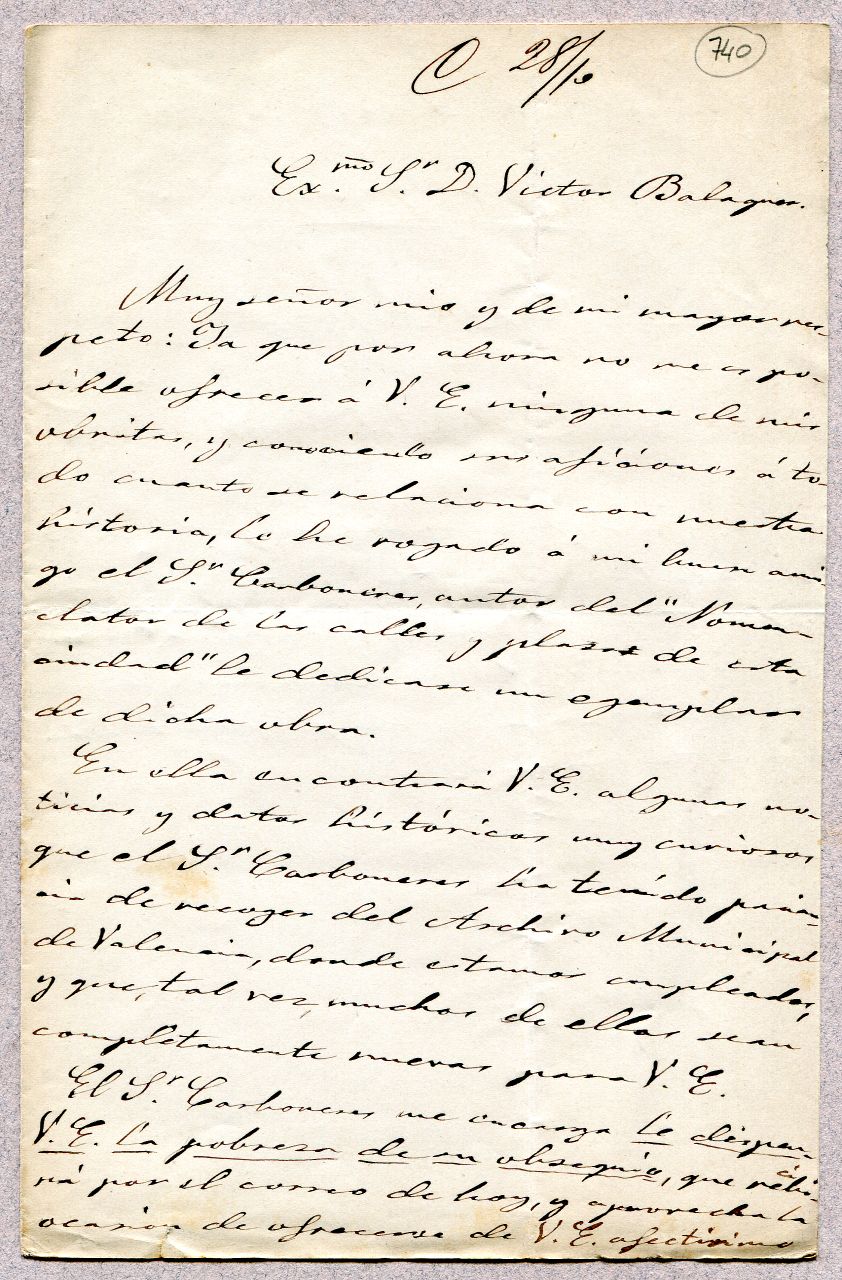 740
C 28/10
Ex.mo S.r D. Victor Balaguer.
Muy señor mio y de mi mayor res-
peto: Ya que por ahora no me es po-
sible ofrecer á V. E. ninguna de mis
obritas, y conociendo sus aficiones á to-
do cuanto se relaciona con nuestra
historia, lo he rogado á mi buen ami
go el S.r Carboneres, autor del "Nomen-
clator de las calles y plazas de esta
ciudad" le dedicase un ejemplar
de dicha obra.
En ella encontrará V. E. algunas no-
ticias y datos históricos muy curiosos
que el S.r Carboneres ha tenido pacien-
cia de recoger del Archivo Municipal
de Valencia, donde estamos empleados,
y que, tal vez, muchos de ellos sean
completamente nuevas para V. E.
El S.r Carboneres me encarga le dispen-
V. E. la pobreza de su obsequio, que reci-
rá por el correo de hoy, y aprovecha la
ocasion de ofrecerse de V. E. afectisimo